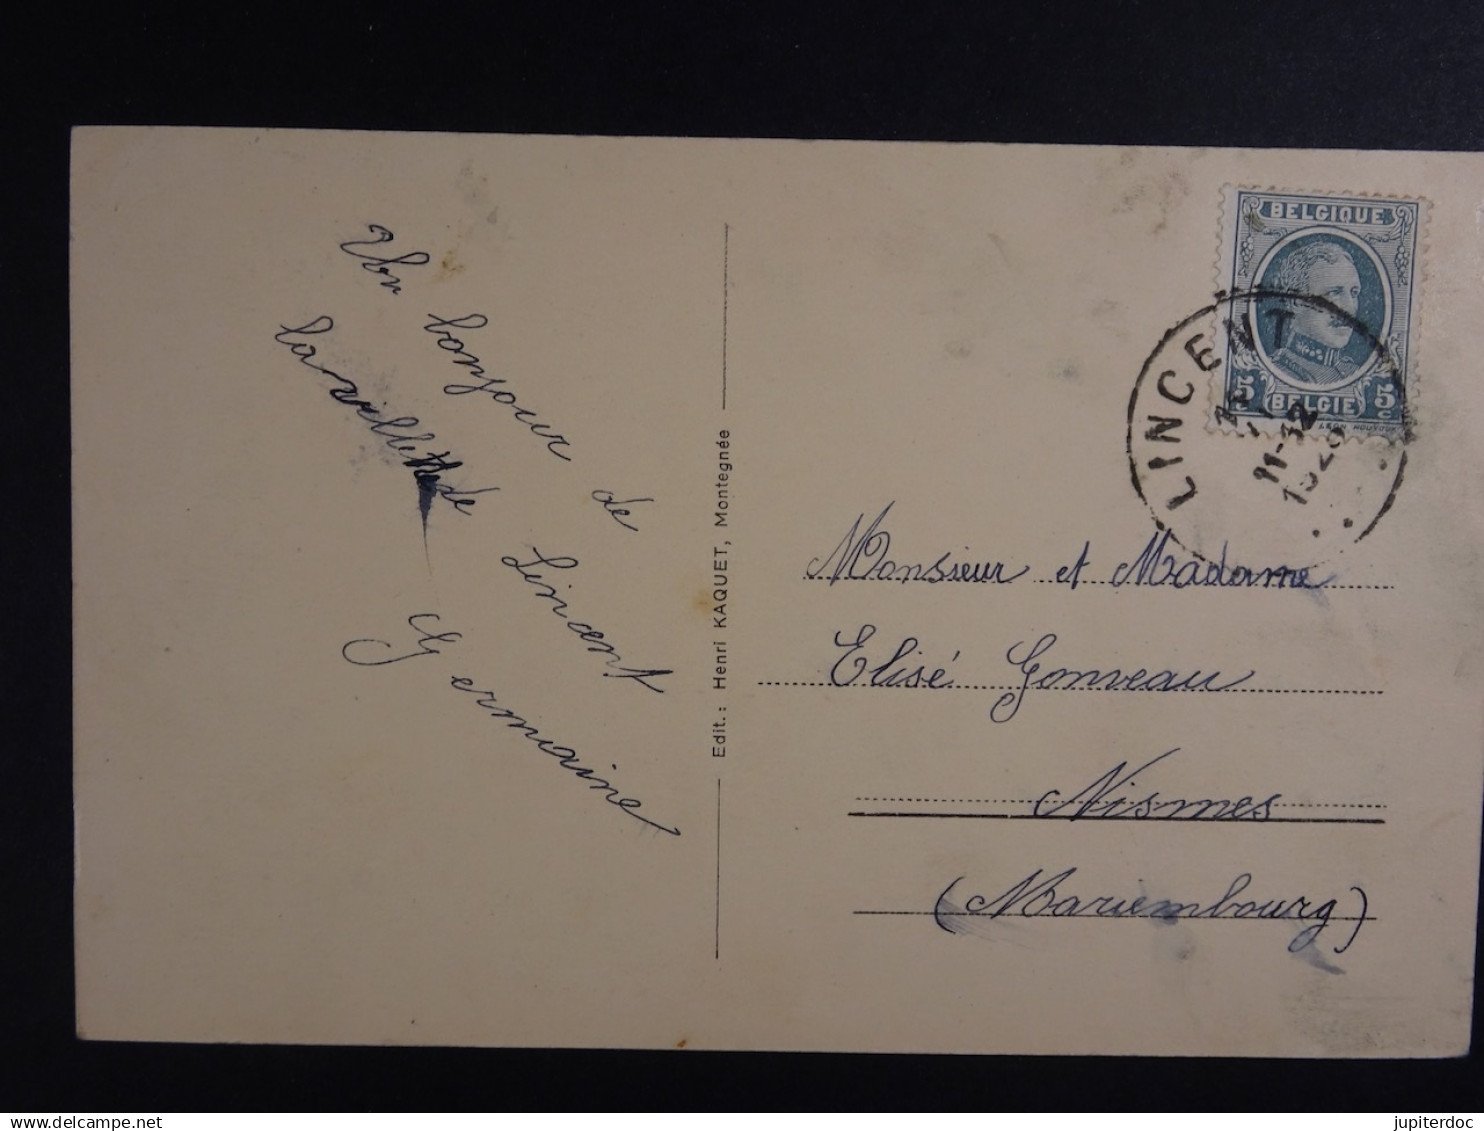 Un bonjour de
la villette de Lincent
Germaine
Edit.: Henri KAQUET, Montegnée
BELGIQUE
5 c BELGIE 5 c
LINCENT
11-12
192
Monsieur et Madame
Elisé Gonveau
Nismes
(Mariembourg)
delcampe.net
jupiterdoc